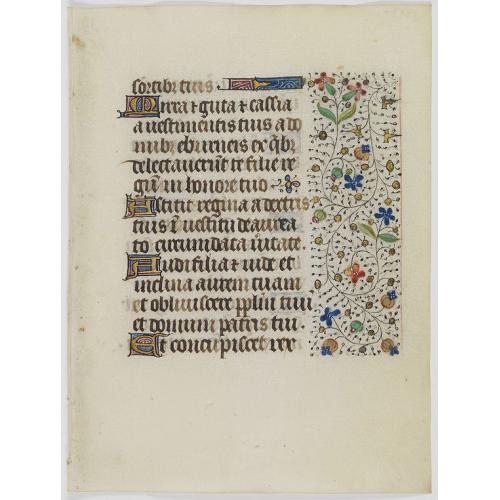 sortibz tuis
Mirra et guta et cassia
a vestimentis tuis a do
mibz eburneis ex qibz
delectaverut te filie re
gu in honore tuo
Astitit regina a dextris
tuis i vestitu deaura
to circumdata varietate.
Audi filia et vide et
inclina aurem tuam
et obliviscere pplm tuu
et domum patris tui.
Et concupiscet rex